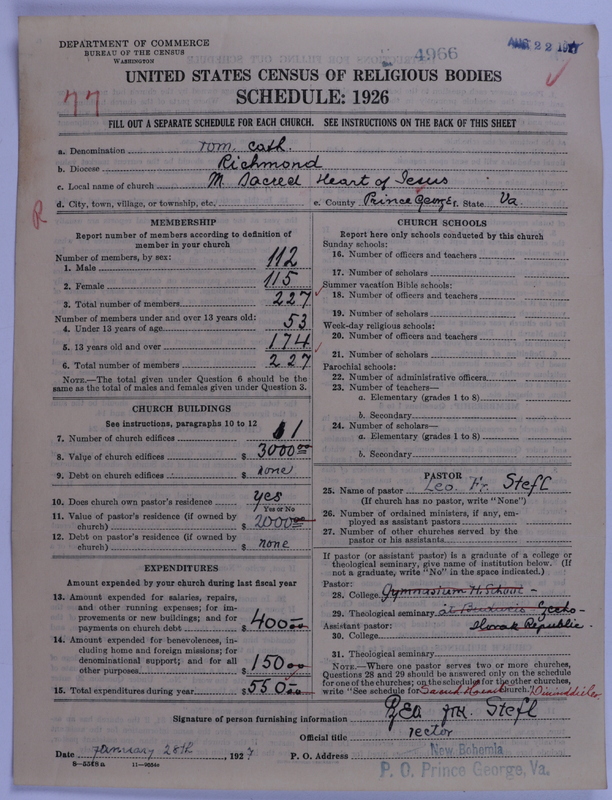 DEPARTMENT OF COMMERCE
BUREAU OF THE CENSUS
WASHINGTON
4966
AUG 22 1927
UNITED STATES CENSUS OF RELIGIOUS BODIES
SCHEDULE: 1926
77
FILL OUT A SEPARATE SCHEDULE FOR EACH CHURCH. SEE INSTRUCTIONS ON THE BACK OF THIS SHEET
a. Denomination rom. Cath.
b. Diocese Richmond
c. Local name of church M. Sacred Heart of Jesus
d. City, town, village, or township, etc. e. County Prince George f. State Va.
R
MEMBERSHIP
Report number of members according to definition of
member in your church
Number of members, by sex:
1. Male 112
2. Female 115
3. Total number of members 227
Number of members under and over 13 years old:
4. Under 13 years of age 53
5. 13 years old and over 174
6. Total number of members 227
NOTE.—The total given under Question 6 should be
same as the total of males and females given under Question 3.
CHURCH BUILDINGS
See instructions, paragraphs 10 to 12
7. Number of church edifices 1
8. Value of church edifices $ 3000 00
9. Debt on church edifices $ none
10. Does church own pastor's residence yes
Yes or No
11. Value of pastor's residence (if owned by
church) $ 2000 00
12. Debt on pastor's residence (if owned by
church) $ none
EXPENDITURES
Amount expended by your church during last fiscal year
13. Amount expended for salaries, repairs,
and other running expenses; for im-
provements or new buildings; and for
payments on church debt $ 400 00
14. Amount expended for benevolences, in-
cluding home and foreign missions; for
denominational support; and for all
other purposes $ 150 00
15. Total expenditures during year $ 550
CHURCH SCHOOLS
Report here only schools conducted by this church
Sunday schools:
16. Number of officers and teachers
17. Number of scholars
Summer vacation Bible schools:
18. Number of officers and teachers
19. Number of scholars
Week-day religious schools:
20. Number of officers and teachers
21. Number of scholars
Parochial schools:
22. Number of administrative officers
23. Number of teachers—
a. Elementary (grades 1 to 8)
b. Secondary
24. Number of scholars—
a. Elementary (grades 1 to 8)
b. Secondary
PASTOR
25. Name of pastor Leo Fr. Stefl
(If church has no pastor, write "None")
26. Number of ordained ministers, if any, em-
ployed as assistant pastors
27. Number of other churches served by the
pastor or his assistants
If pastor (or assistant pastor) is a graduate of a college or
theological seminary, give name of institution below. (If
not a graduate, write "No" in the space indicated.)
Pastor:
28. College Gymnasium H. School -
29. Theological seminary at Czecho-
Assistant pastor: Slovak Republic.
30. College
31. Theological seminary
NOTE.—Where one pastor serves two or more churches,
Questions 28 and 29 should be answered only on the schedule
for one of the churches; on the schedule for the other churches,
write "See schedule for Sacred Heart church." Dinwiddie Co.
Signature of person furnishing information Leo Fr. Stefl
Official title rector
Date January 28th, 1927 P. O. Address New Bohemia
P. O. Prince George, Va.
8-5518 a 11-9554